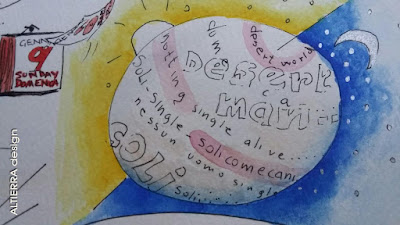 GENN
9
SUNDAY
desert world
DESERT
a
man...
nothing single alive...
soli-single-solicomecani
nessun uomo single
SOLI
soli...
ALTIERRA design